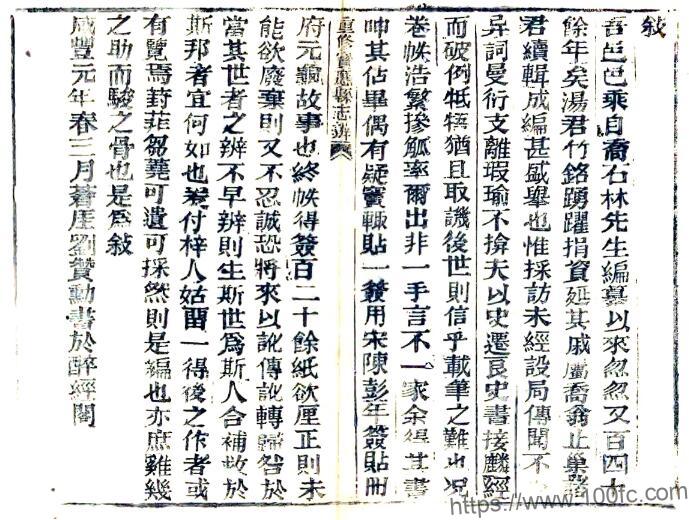 敘
吾邑邑乘自喬石林先生編纂以來忽忽又百四十
餘年矣湯君竹銘踴躍捐資延其戚屬喬翁止巢路
君續輯成編甚盛舉也惟採訪未經設局傳聞不
异詞曼衍支離瑕瑜不揜夫以史遷良史書接麟經
而破例牴牾猶且取譏後世則信乎載筆之難也况
卷帙浩繁摻觚率爾出非一手言不一家余得其書
呻其佔畢偶有疑竇輒貼一簽用宋陳彭年簽貼册
重修寶應縣志辨
府元龜故事也終帙得簽百二十餘紙欲厘正則未
能欲廢棄則又不忍誠恐將來以訛傳訛轉歸咎於
當其世者之辨不早辨則生斯世為斯人合補救於
斯邦者宜何如也爰付梓人姑畱一得後之作者或
有覽焉葑菲芻蕘可遺可採然則是編也亦庶雞幾
之助而駿之骨也是爲敘
咸豐元年春三月蒼厓劉贊勳書於醉經閣
https://www.100fc.com